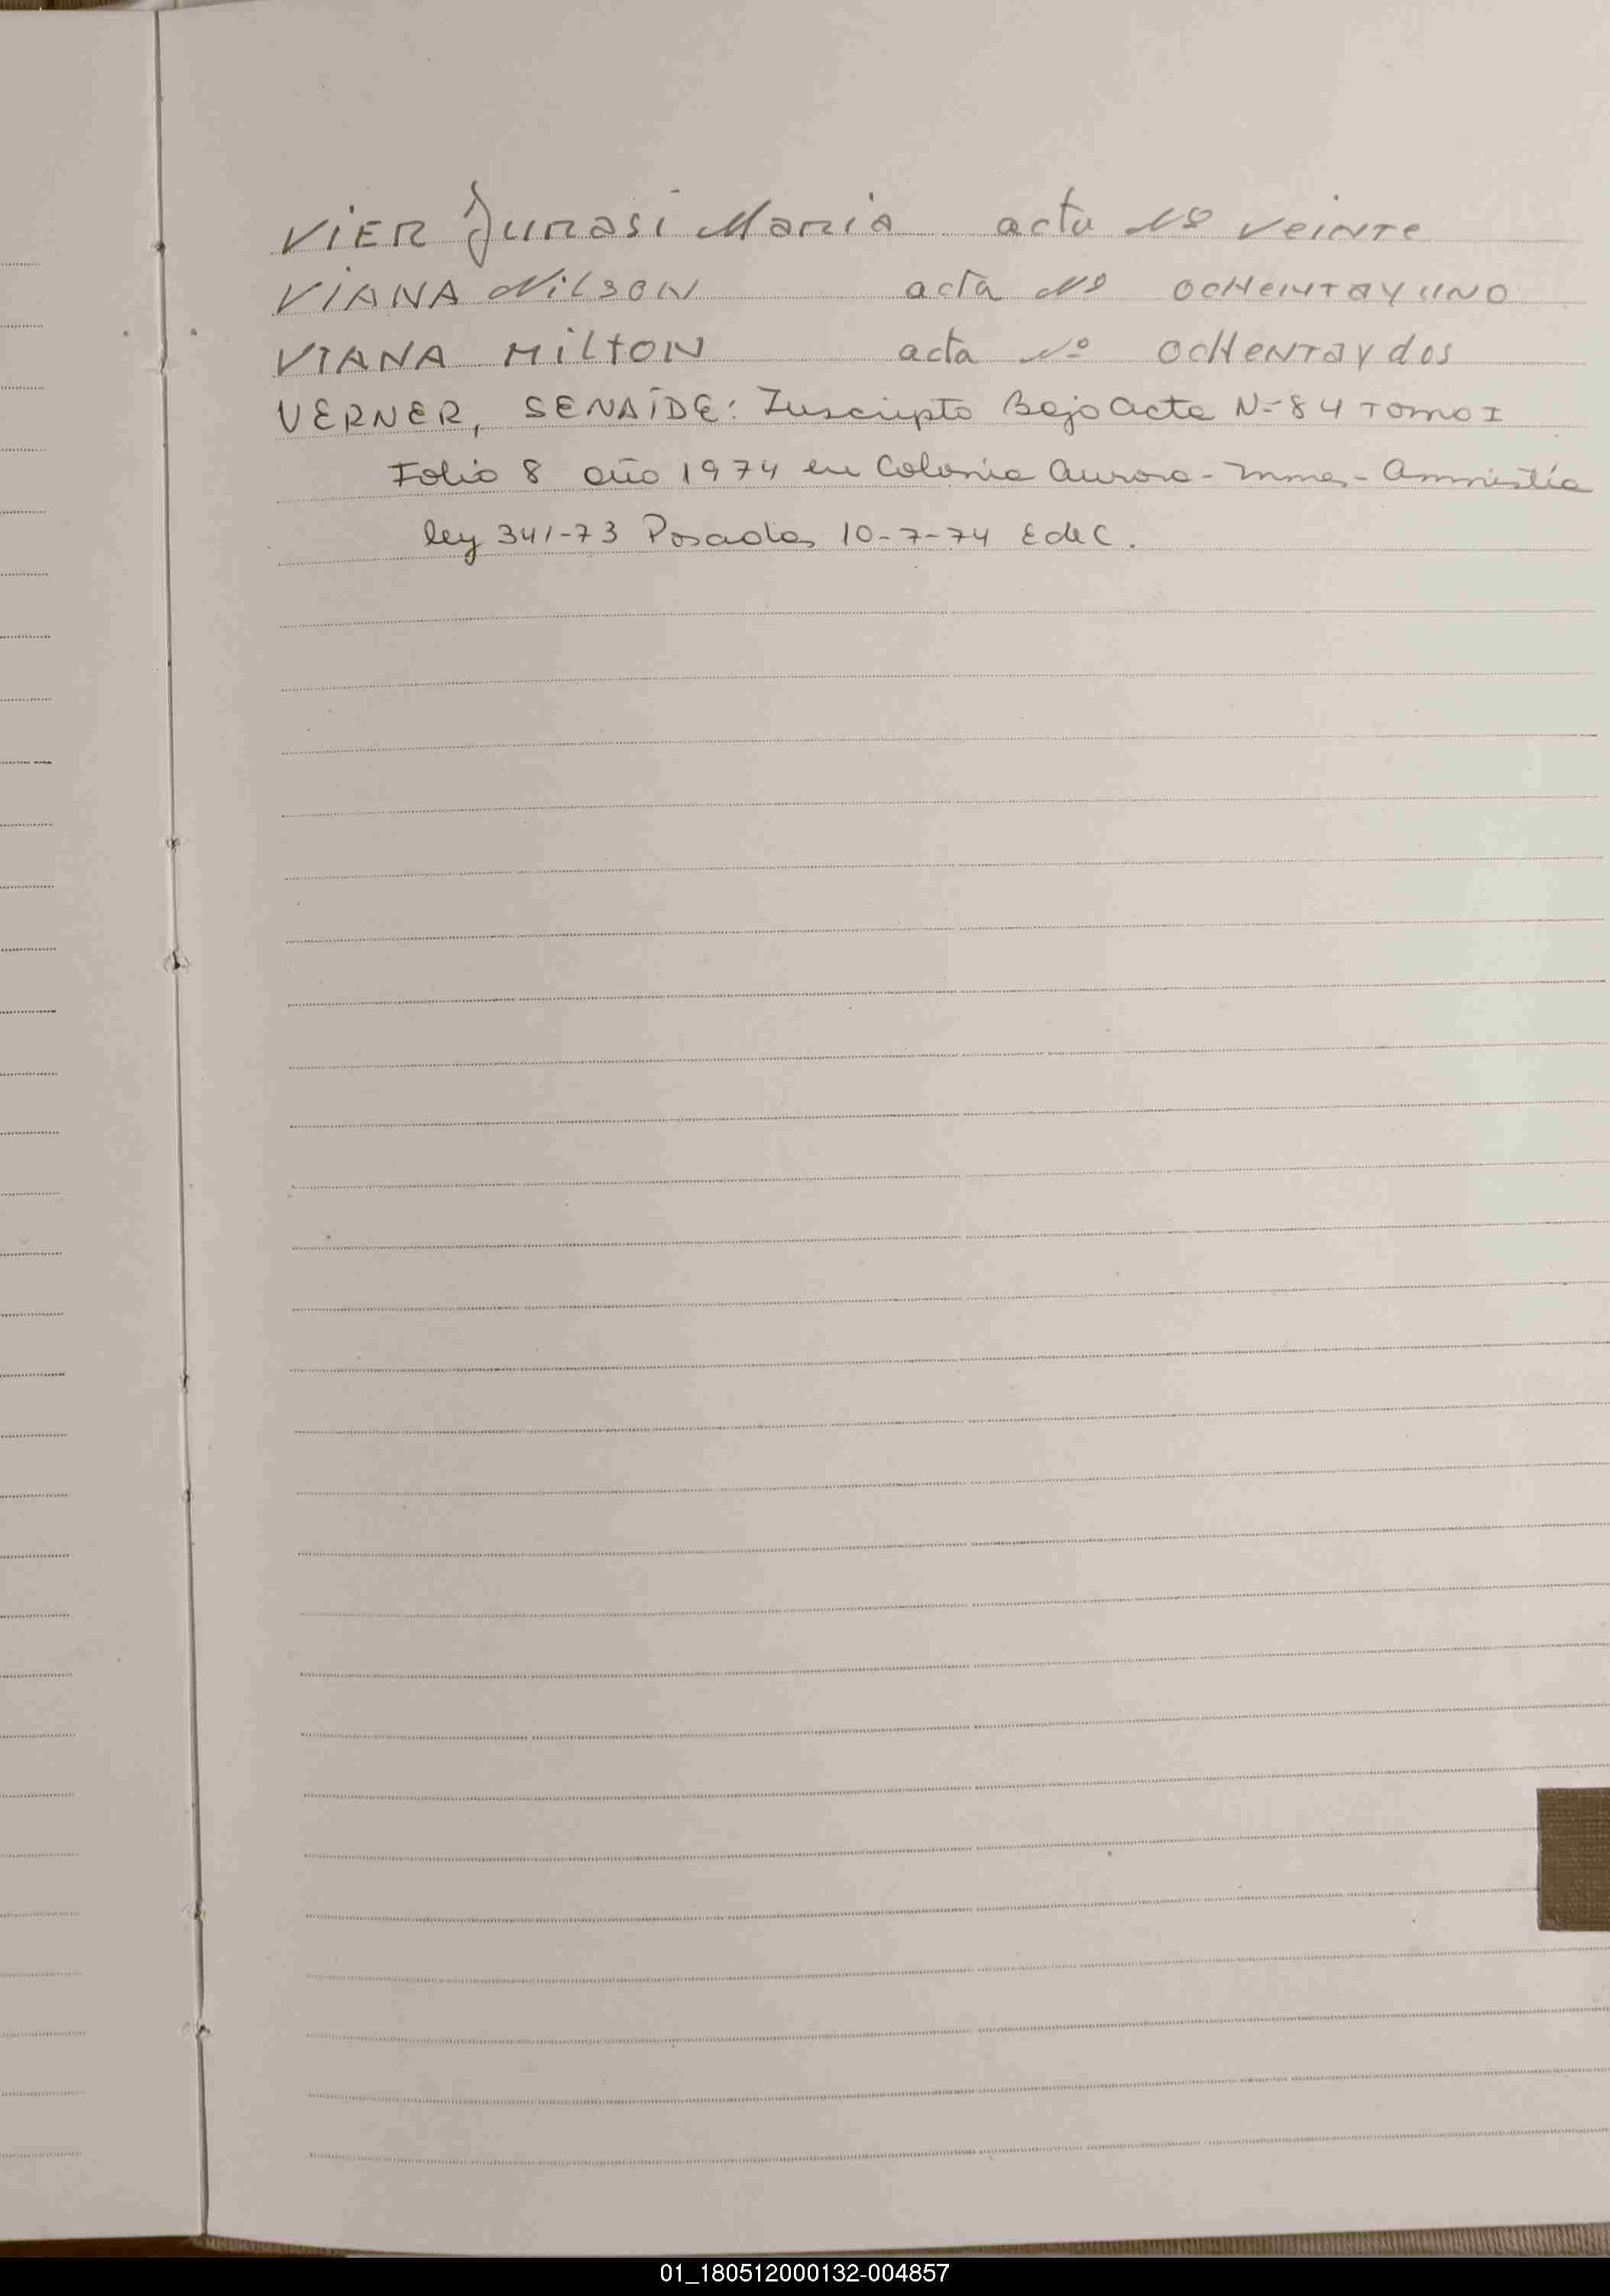 VIER Jurasi Maria acta Nº veinte
VIANA Nilson acta Nº ochentayuno
VIANA Milton acta Nº ochentaydos
VERNER, SENAIDE: Inscripto Bajo Acta N-84 Tomo I
Folio 8 año 1974 en Colonia Aurora - Mnes - Amnistía
ley 341-73 Posadas 10-7-74 E de C.
01_180512000132-004857